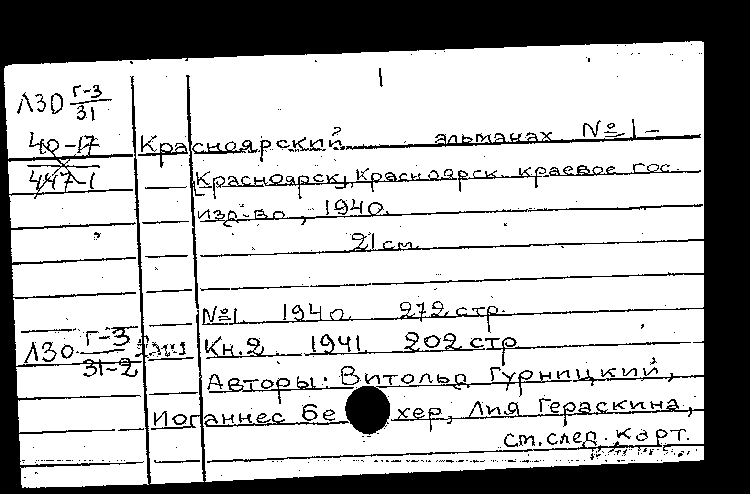 1
Л30 Г-3/31
40-17
447-1
Красноярский альманах №1-
Красноярск, Красноярск. краевое гос.
изд-во, 1940.
21 см.
№1. 1940. 272 стр.
Л30 Г-3/31-2 Кн.2 1941. 202 стр
Авторы: Витольд Гурницкий,
Иоганнес Бе хер, Лия Гераскина,
см. след. карт.